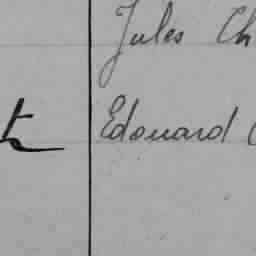 Jules Ch
Edouard